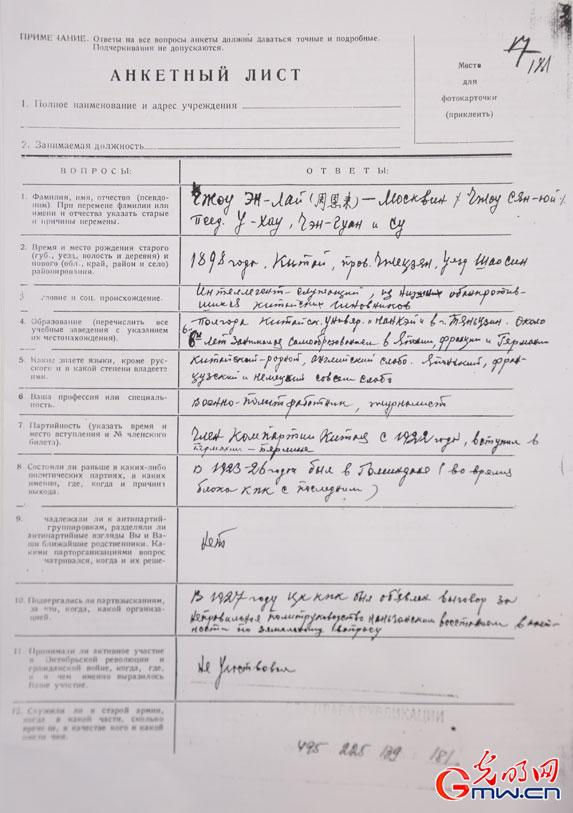 ПРИМЕЧАНИЕ. Ответы на все вопросы анкеты должны даваться точные и подробные.
Подчеркивания не допускаются.
АНКЕТНЫЙ ЛИСТ
Место
для
фотокарточки
(приклеить)
17
181
1. Полное наименование и адрес учреждения
2. Занимаемая должность
ВОПРОСЫ:
ОТВЕТЫ:
1. Фамилия, имя, отчество (псевдо-
ним). При перемене фамилии или
имени и отчества указать старые
и причины перемены.
Чжоу Эн-Лай (周恩来) — Москвин / Чжоу Сян-юй /
Псед. У-Хау, Чэн-Гуан и Су
2. Время и место рождения старого
(губ., уезд, волость и деревня) и
нового (обл., край, район и село)
районирования.
1898 года, Китай, пров. Чжецзян, уезд Шаосин
словие и соц. происхождение.
Интеллегент-служащий, из обанкротив-
шихся китайских чиновников
4. Образование (перечислить все
учебные заведения с указанием
их местонахождения).
Полгода Китайск. универ. "Нанкай" в г. Тяньцзин. Около
6 лет занимался самообразованием в Японии, Франции и Германии
5. Какие знаете языки, кроме рус-
ского и в какой степени владеете
ими.
Китайский-родной, английский слабо. Японский, фран-
цузский и немецкий совсем слабо
6 Ваша профессия или специаль-
ность.
Военно-политработник, журналист
7. Партийность (указать время и
место вступления и № членского
билета).
Член Компартии Китая с 1922 года, вступил в
Германии - Берлине
8. Состояли ли раньше в каких-либо
политических партиях, в каких
именно, где, когда и причины
выхода.
В 1923-26 годах был в Гоминдане (во время
блока КПК с последним)
9.
чадлежали ли к антипартий-
группировкам, разделяли ли
антипартийные взгляды Вы и Ва-
ши ближайшие родственники. Ка-
кими парторганизациями вопрос
матривался, когда и их реше-
Нет
10. Подвергались ли партвзысканиям,
за что, когда, какой организа-
цией.
В 1927 году ЦК КПК был об'явлен выговор за
неправильное политруководство наньчанским восстанием в част-
ности по земельному вопросу
11. Принимали ли активное участие
в Октябрьской революции и
гражданской войне, когда, где,
и в чем именно выразилось
Ваше участие.
Не участвовал
12. Служили ли в старой армии,
когда в какой части, сколько
времени, в качестве кого и какой
имели чин.
ПРАВА ПУБЛИКАЦИИ
495 225 139 181
光明网
GMW.cn